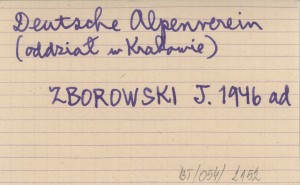 Deutsche Alpenverein
(oddział w Krakowie)
ZBOROWSKI J. 1946 ad
BT/054/2152